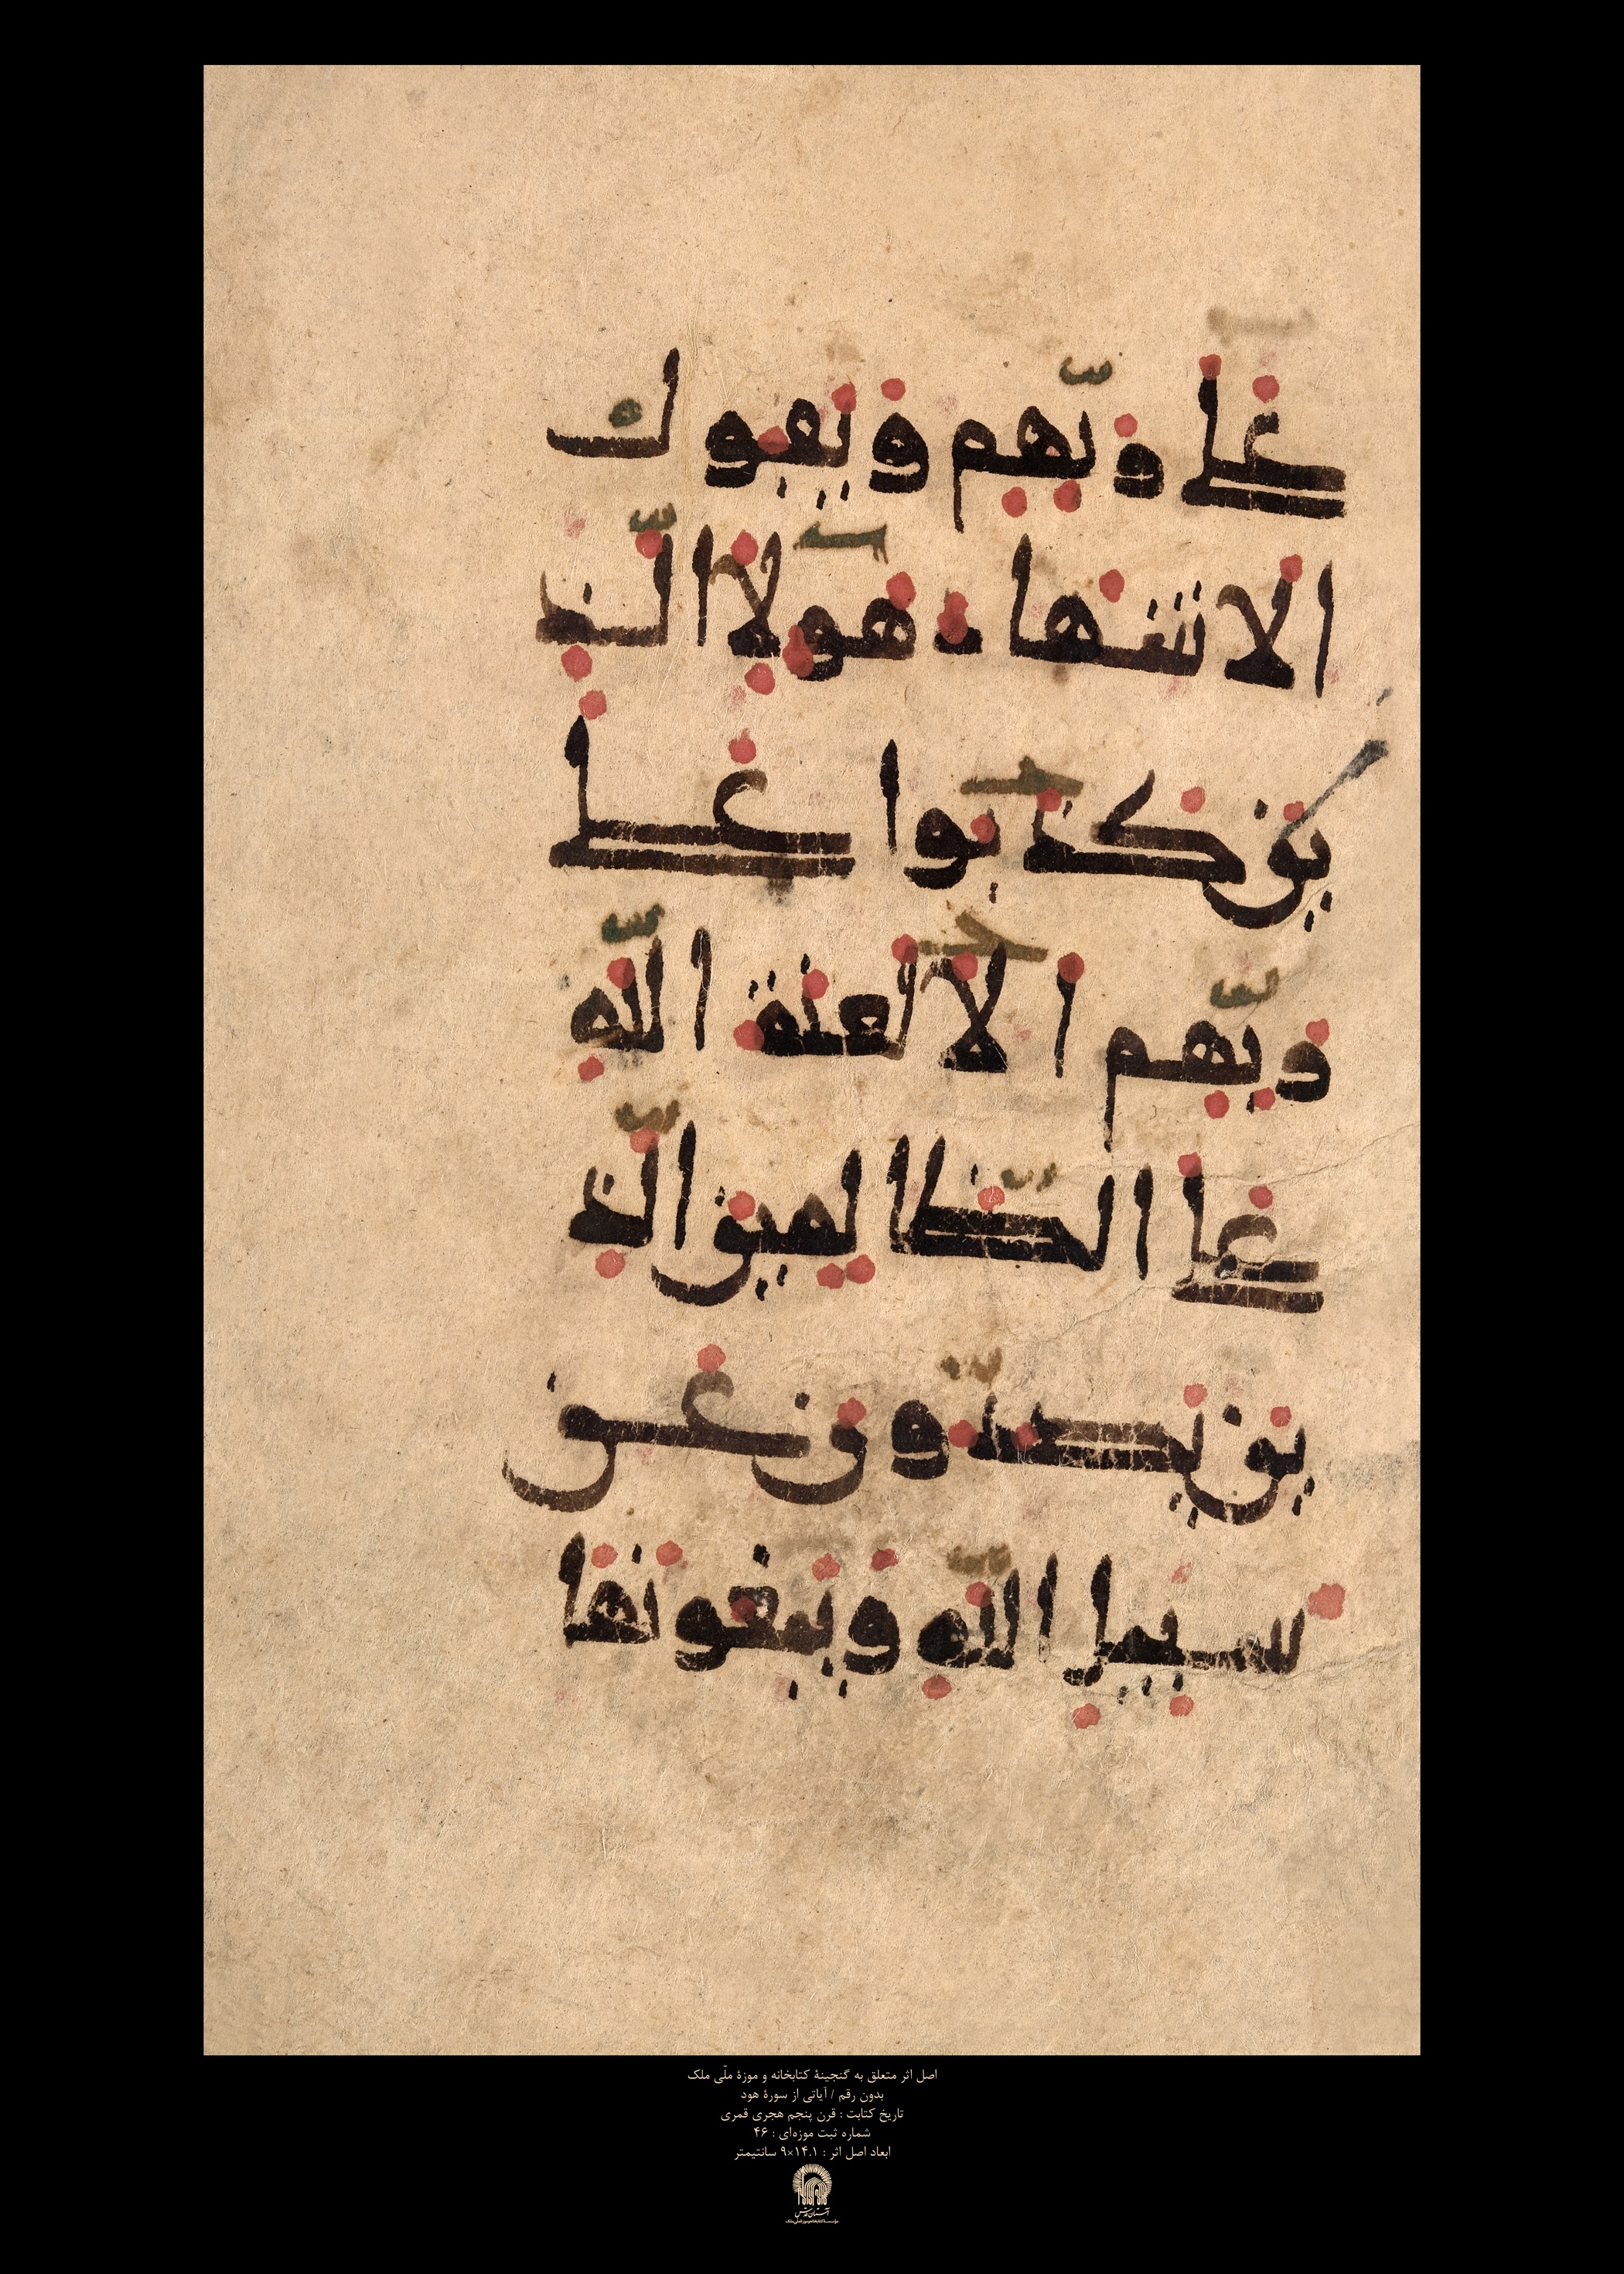 على ربّهم ويقول
الاشهاد هولا الذ
ين كذبوا على
ربّهم الا لعنة اللّه
على الظالمين الذ
ين يصدون عن
سبيل اللّه ويبغونها
اصل اثر متعلق به گنجینهٔ کتابخانه و موزهٔ ملّی ملک
بدون رقم / آیاتی از سورهٔ هود
تاریخ کتابت : قرن پنجم هجری قمری
شماره ثبت موزه‌ای : ۴۶
ابعاد اصل اثر : ۱۴.۱×۹ سانتیمتر
آستان قدس